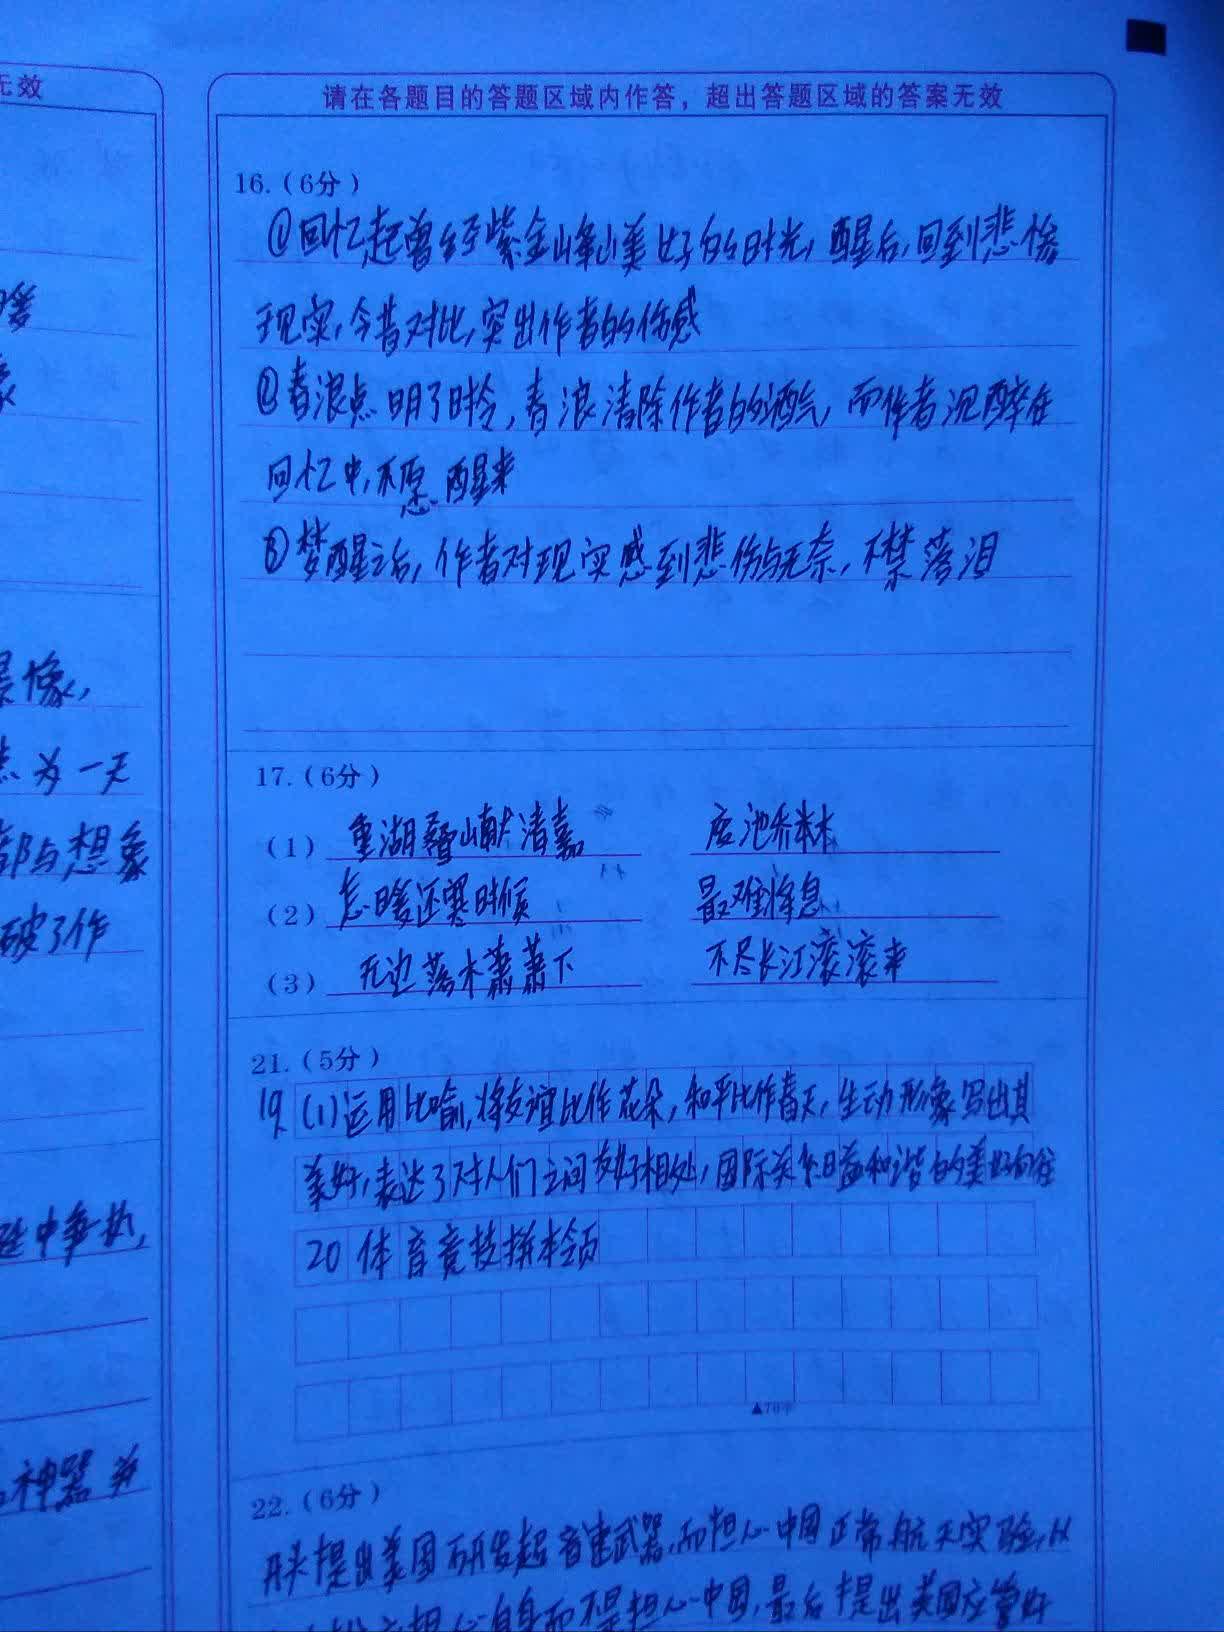 无效
请在各题目的答题区域内作答，超出答题区域的答案无效
16.（6分）
①回忆起曾经于紫金峰山美好的时光，醒后，回到悲惨
现实，今昔对比，突出作者的伤感
②春浪点明了时令，春浪清除作者的酒气，而作者沉醉在
回忆中，不愿醒来
③梦醒之后，作者对现实感到悲伤与无奈，不禁落泪
17.（6分）
（1）重湖叠巘清嘉 度池乔林
（2）乍暖还寒时候 最难将息
（3）无边落木萧萧下 不尽长江滚滚来
21.（5分）
19 (1)运用比喻，将友谊比作花朵，和平比作春天，生动形象写出其
美好，表达了对人们之间友好相处，国际关系日益和谐的美好向往
20 体育竞技拼本领
▲70字
22.（6分）
开头提出美国研发超音速武器，而担心中国正常航天实验，从
担心自身而不是担心中国，最后提出美国应管好
暖
景像，
为一天
部与想象
破了作
中争执，
神器并